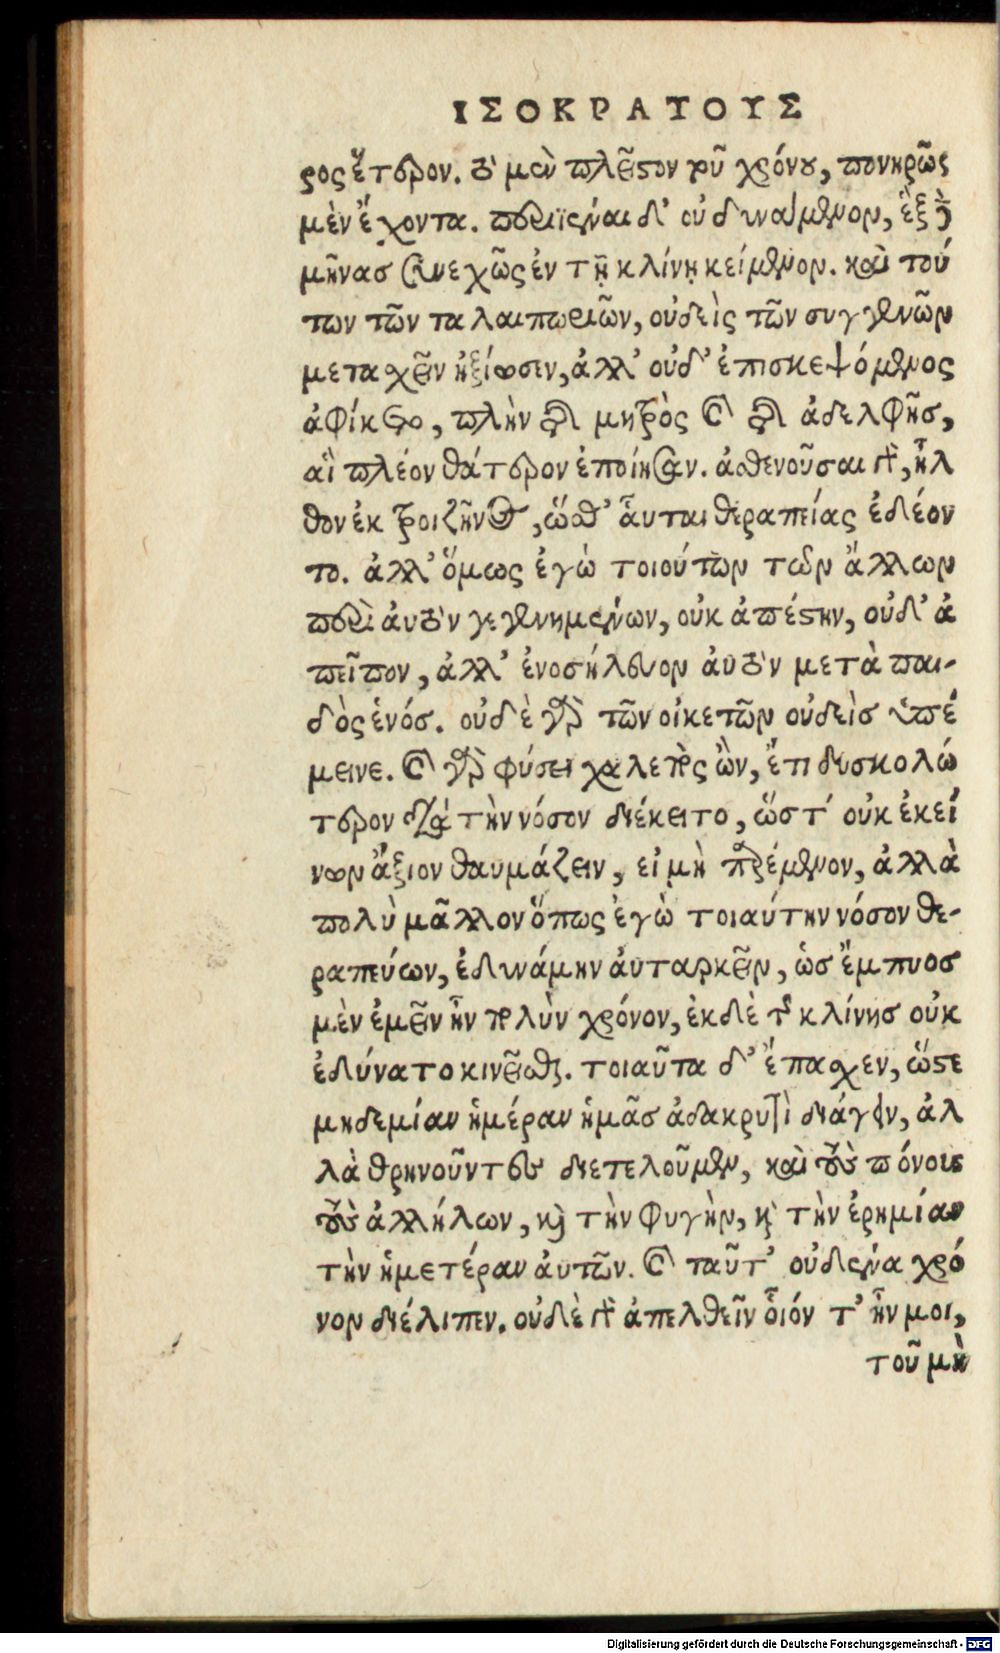 ΙΣΟΚΡΑΤΟΥΣ
ρος ἕτερον. τὸ μὲν πλεῖστον τοῦ χρόνου, πονηρῶς
μὲν ἔχοντα. περιϊέναι δ' οὐ δυνάμενον, ἓξ δὲ
μῆνασ συνεχῶς ἐν τῇ κλίνῃ κείμενον. καὶ τού
των τῶν ταλαιπωριῶν, οὐδεὶς τῶν συγγενῶν
μετασχεῖν ἠξίωσεν, ἀλλ' οὐδ' ἐπισκεψόμενος
ἀφίκετο, πλὴν τῆς μητρὸς καὶ τῆς ἀδελφῆσ,
αἳ πλέον θάτερον ἐποίησαν. ἀσθενοῦσαι γὰρ, ἦλ
θον ἐκ τροιζῆνος, ὥσθ' ἅυται θεραπείας ἐδέον
το. ἀλλ' ὅμως ἐγὼ τοιούτων τῶν ἄλλων
περὶ ἀυτὸν γεγενημένων, οὐκ ἀπέστην, οὐδ' ἀ
πεῖπον, ἀλλ' ἐνοσήλευον ἀυτὸν μετὰ παι-
δὸς ἑνόσ. οὐδὲ γὰρ τῶν οἰκετῶν οὐδεὶσ ὑπέ
μεινε. καὶ γὰρ φύσει χαλεπὸς ὢν, ἔτι δυσκολώ
τερον διὰ τὴν νόσον διέκειτο, ὥστ' οὐκ ἐκεί
νων ἄξιον θαυμάζειν, εἰ μὴ παρέμενον, ἀλλὰ
πολὺ μᾶλλον ὅπως ἐγὼ τοιαύτην νόσον θε-
ραπεύων, ἐδυνάμην ἀυταρκεῖν, ὡσ ἔμπυοσ
μὲν ἐμεῖν ἦν πολὺν χρόνον, ἐκ δὲ τῆς κλίνησ οὐκ
ἐδύνατο κινεῖσθαι. τοιαῦτα δ' ἔπασχεν, ὥστε
μηδεμίαν ἡμέραν ἡμᾶσ ἀδακρυτὶ διάγειν, ἀλ
λὰ θρηνοῦντες διετελοῦμεν, καὶ τοὺς πόνους
τοὺς ἀλλήλων, καὶ τὴν φυγὴν, καὶ τὴν ἐρημίαν
τὴν ἡμετέραν ἀυτῶν. καὶ ταῦτ' οὐδένα χρό
νον διέλιπεν. οὐδὲ γὰρ ἀπελθεῖν οἷόν τ' ἦν μοι,
τοῦ μὴ
Digitalisierung gefördert durch die Deutsche Forschungsgemeinschaft - DFG